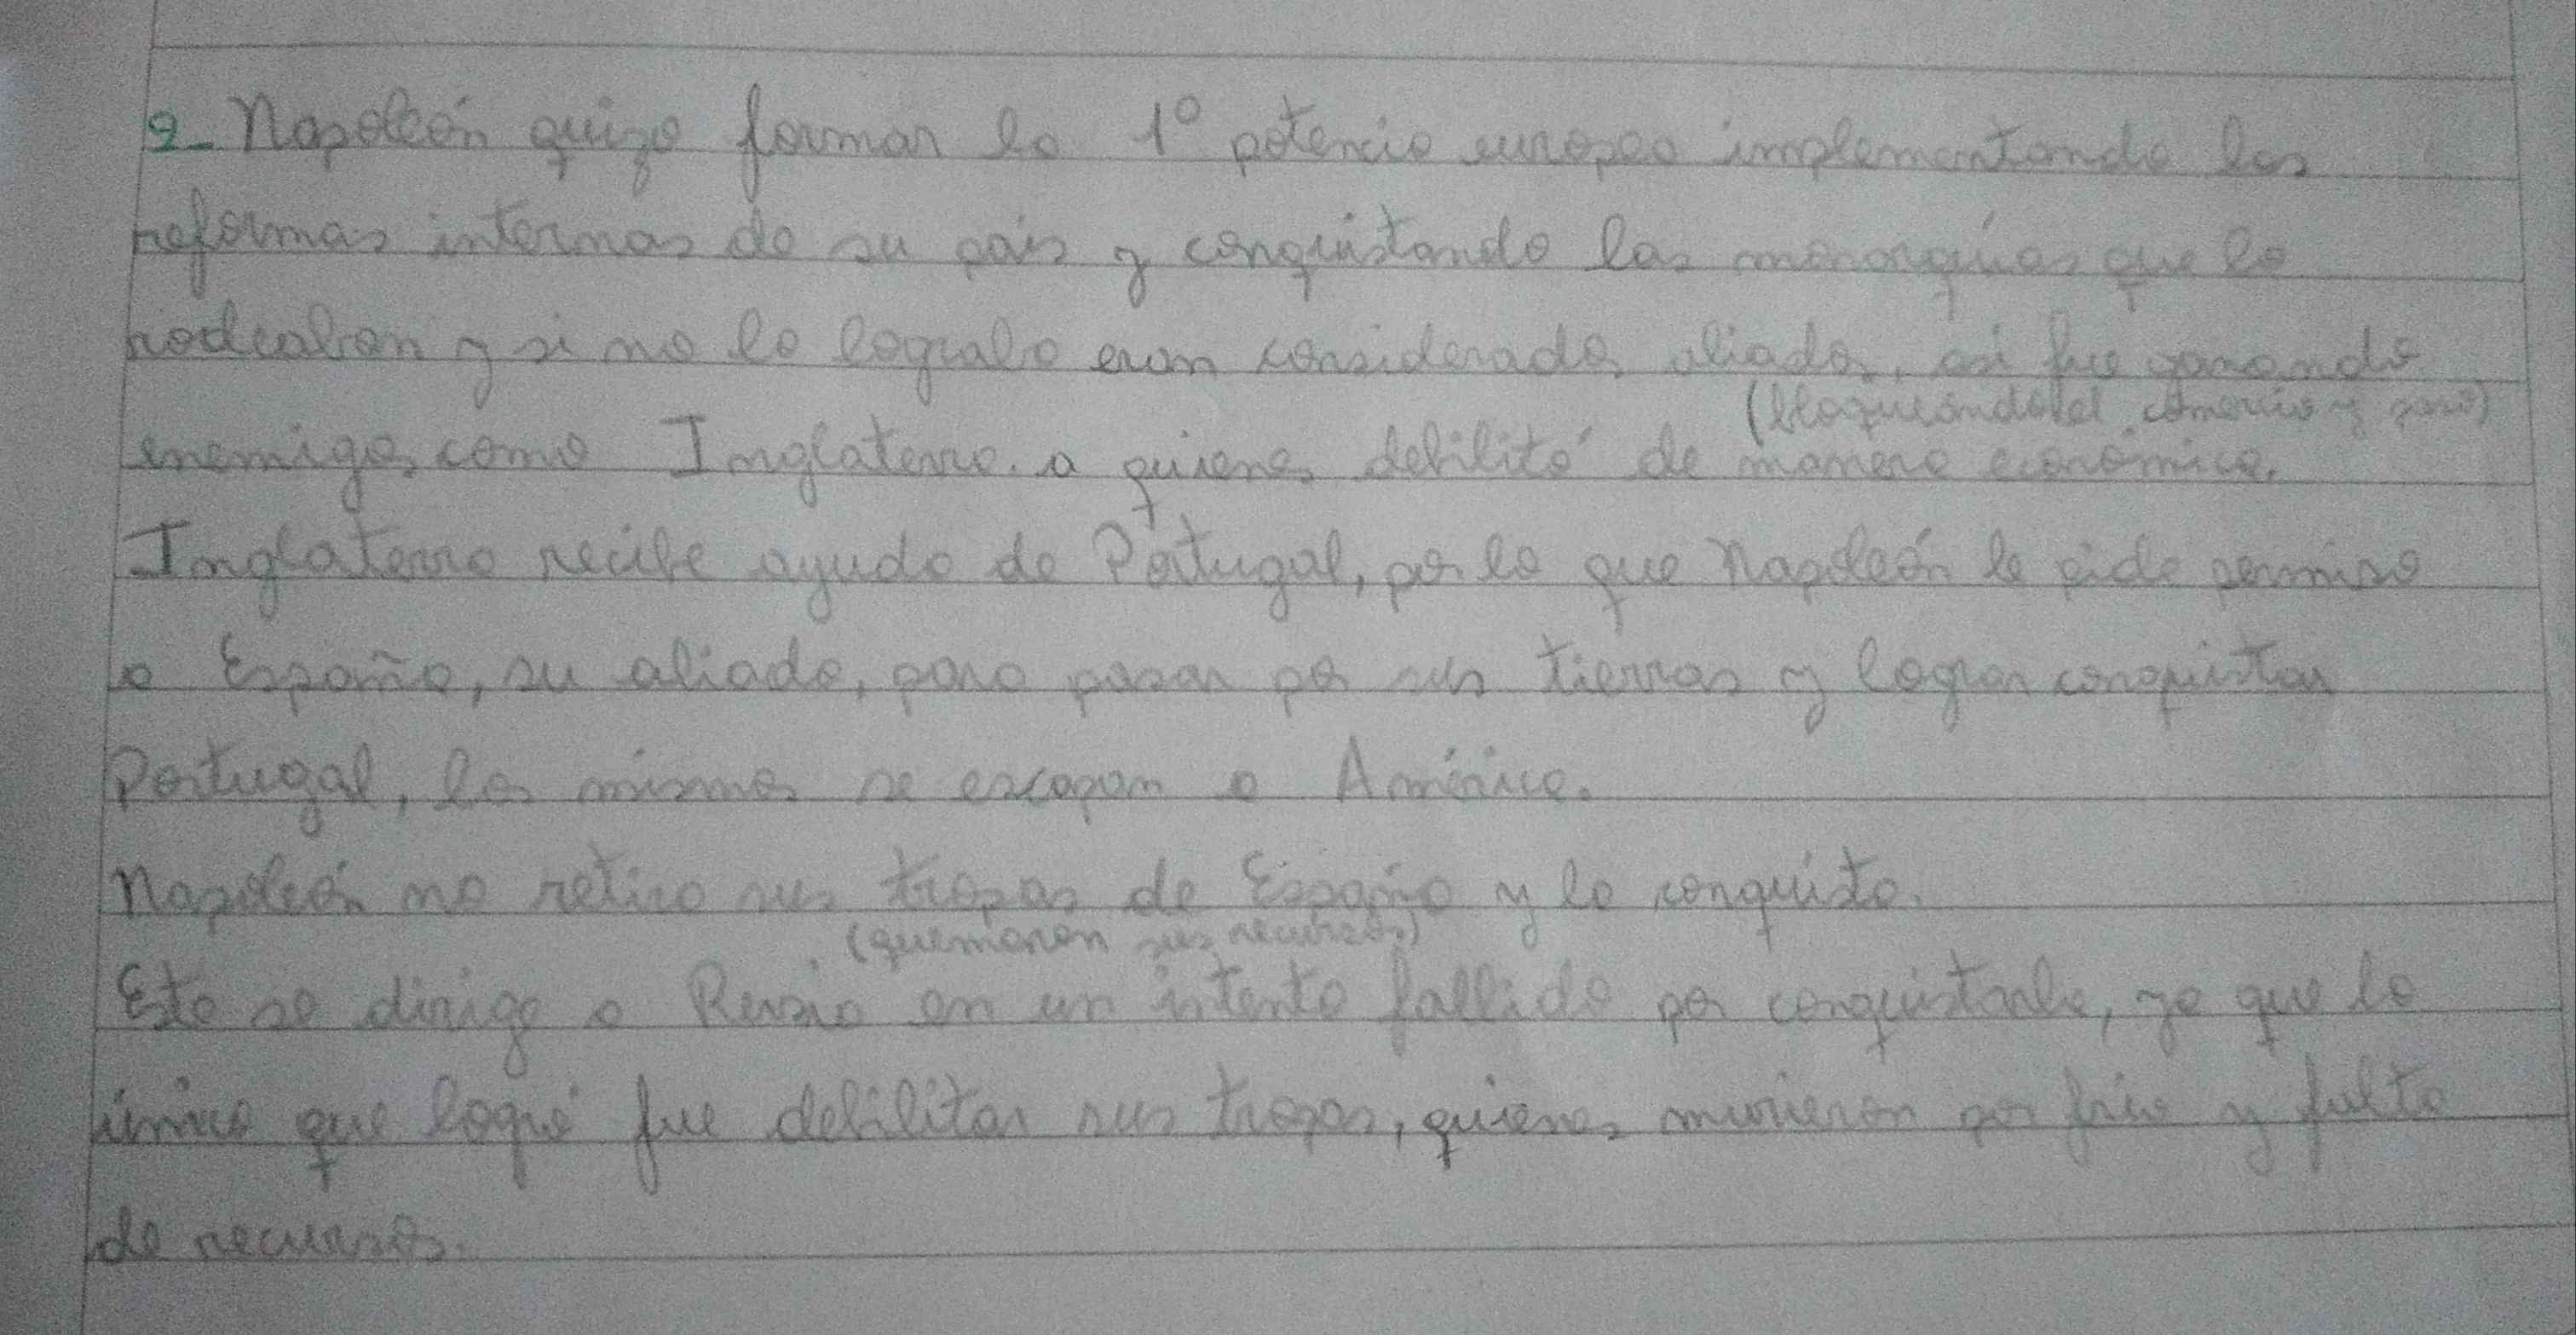 9- Napoleón quizo formar la 1° potencia europea implementando las
reformas internas de su país y conquistando las monarquías que lo
rodeaban y si no lo lograba eran considerados aliados, así fue ganando
(bloqueándole el comercio y paso)
enemigos como Inglaterra. a quienes debilitó de manera económica.
Inglaterra recibe ayuda de Portugal, por lo que Napoleón le pide permiso
a España, su aliado, para pasar por sus tierras y lograr conquistar
Portugal, los mismos se escapan a América.
Napoleón no retiro sus tropas de España y la conquisto.
(quemaron sus recursos)
Este se dirige a Rusia en un intento fallido por conquistarla, ya que lo
único que logró fue debilitar sus tropas, quienes murieron por frío y falta
de recursos.